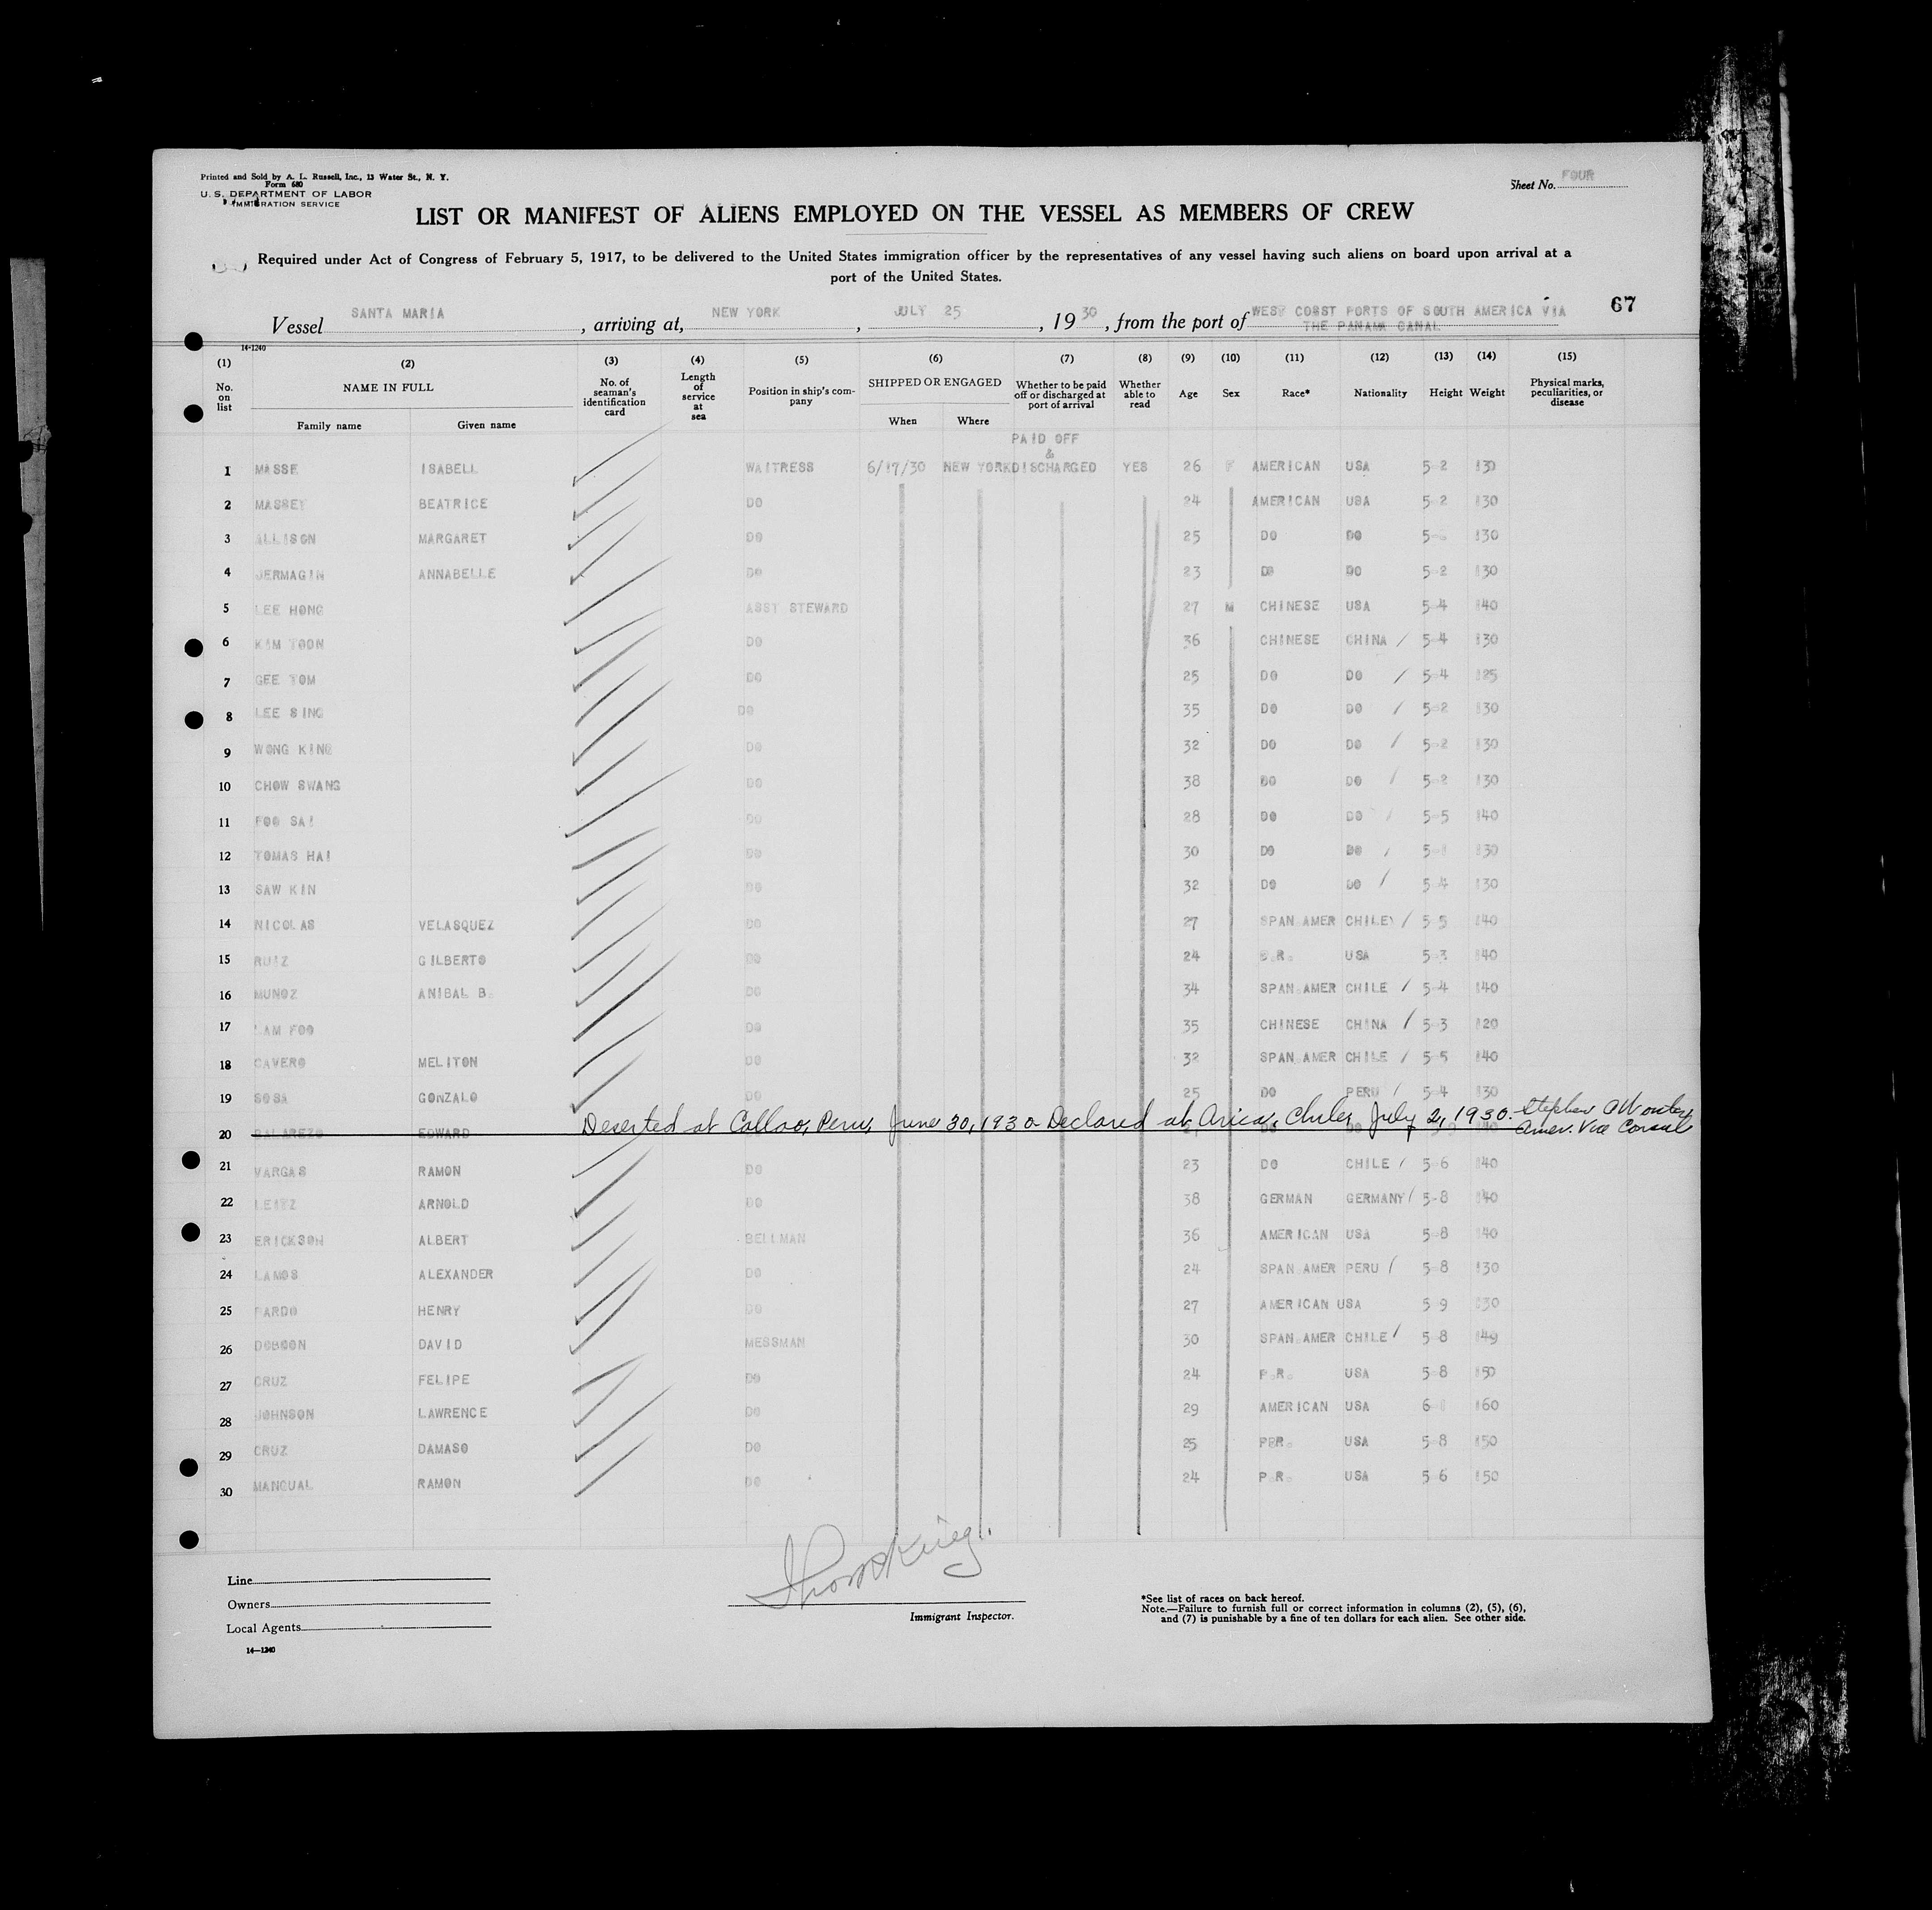 Printed and Sold by A. L. Russell, Inc., 13 Water St., N. Y.
Form 680
U. S. DEPARTMENT OF LABOR
IMMIGRATION SERVICE
Sheet No. FOUR
LIST OR MANIFEST OF ALIENS EMPLOYED ON THE VESSEL AS MEMBERS OF CREW
Required under Act of Congress of February 5, 1917, to be delivered to the United States immigration officer by the representatives of any vessel having such aliens on board upon arrival at a
port of the United States.
Vessel SANTA MARIA, arriving at, NEW YORK, JULY 25, 1930, from the port of WEST COAST PORTS OF SOUTH AMERICA VIA 67
THE PANAMA CANAL
14-1240
(1) (2) (3) (4) (5) (6) (7) (8) (9) (10) (11) (12) (13) (14) (15)
No. on list NAME IN FULL No. of seaman's identification card Length of service at sea Position in ship's company SHIPPED OR ENGAGED Whether to be paid off or discharged at port of arrival Whether able to read Age Sex Race* Nationality Height Weight Physical marks, peculiarities, or disease
Family name Given name When Where
PAID OFF
&
1 MASSE ISABELL WAITRESS 6/17/30 NEW YORK DISCHARGED YES 26 F AMERICAN USA 5-2 130
2 MASSEY BEATRICE DO 24 AMERICAN USA 5-2 130
3 ALLISON MARGARET DO 25 DO DO 5- 130
4 JERMAGIN ANNABELLE DO 23 DO DO 5-2 130
5 LEE HONG ASST STEWARD 27 M CHINESE USA 5-4 140
6 KIM TOON DO 36 CHINESE CHINA / 5-4 130
7 GEE TOM DO 25 DO DO / 5-4 125
8 LEE SING DO 35 DO DO / 5-2 130
9 WONG KING DO 32 DO DO / 5-2 130
10 CHOW SWANG DO 38 DO DO / 5-2 130
11 FOO SAI DO 28 DO DO / 5-5 140
12 TOMAS HAI DO 30 DO DO / 5-1 130
13 SAW KIN DO 32 DO DO / 5-4 130
14 NICOLAS VELASQUEZ DO 27 SPAN.AMER CHILE / 5-5 140
15 RUIZ GILBERTO DO 24 P.R. USA 5-3 140
16 MUNOZ ANIBAL B. DO 34 SPAN.AMER CHILE / 5-4 140
17 LAM FOO DO 35 CHINESE CHINA / 5-3 120
18 CAVERO MELITON DO 32 SPAN.AMER CHILE / 5-5 140
19 SOSA GONZALO DO 25 DO PERU / 5-4 130
20 BALAREZO EDWARD Deserted at Callao, Peru, June 30, 1930 Declared at Arica, Chile, July 2, 1930. Stephen
Amer. Vice Consul
21 VARGAS RAMON DO 23 DO CHILE / 5-6 140
22 LEITZ ARNOLD DO 38 GERMAN GERMANY / 5-8 140
23 ERICKSON ALBERT BELLMAN 36 AMERICAN USA 5-8 140
24 LAMOS ALEXANDER DO 24 SPAN.AMER PERU / 5-8 130
25 PARDO HENRY DO 27 AMERICAN USA 5-9 130
26 DOBSON DAVID MESSMAN 30 SPAN.AMER CHILE / 5-8 149
27 CRUZ FELIPE DO 24 P.R. USA 5-8 150
28 JOHNSON LAWRENCE DO 29 AMERICAN USA 6-1 160
29 CRUZ DAMASO DO 25 PPR. USA 5-8 150
30 MANGUAL RAMON DO 24 P.R. USA 5-6 150
Line
Owners
Local Agents
14—1240
Immigrant Inspector.
*See list of races on back hereof.
Note.—Failure to furnish full or correct information in columns (2), (5), (6),
and (7) is punishable by a fine of ten dollars for each alien. See other side.